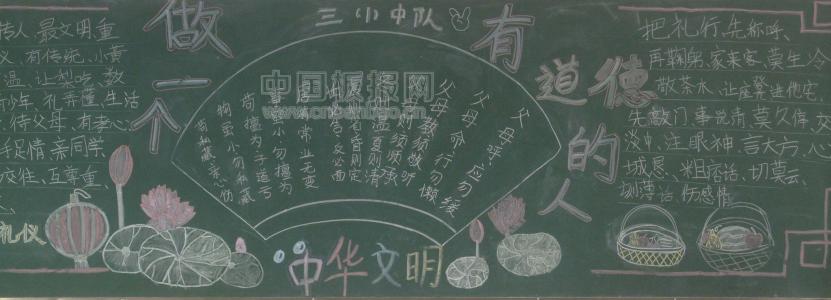 做一个有道德的人
三(1)中队
传人,最文明,重
义、有传统,小黄
温,让梨吃,教
年少,礼并谨,生活
待父母,有孝心
手足情,亲同学
交往,互尊重
礼仪
中国板报网
父母呼 应勿缓
父母命 行勿懒
父母教 须敬听
父母责 须顺承
冬则温 夏则凊
晨则省 昏则定
出必告 反必面
居有常 业无变
事虽小 勿擅为
苟擅为 子道亏
物虽小 勿私藏
苟私藏 亲心伤
中华文明
把礼行,先称呼,
再鞠躬,家来客,莫生冷
敬茶水,让座凳,进他宅,
先敲门,事说清,莫久停,交
谈中,注眼神,言大方,心
诚恳,粗痞话,切莫云,
刻薄话,伤感情